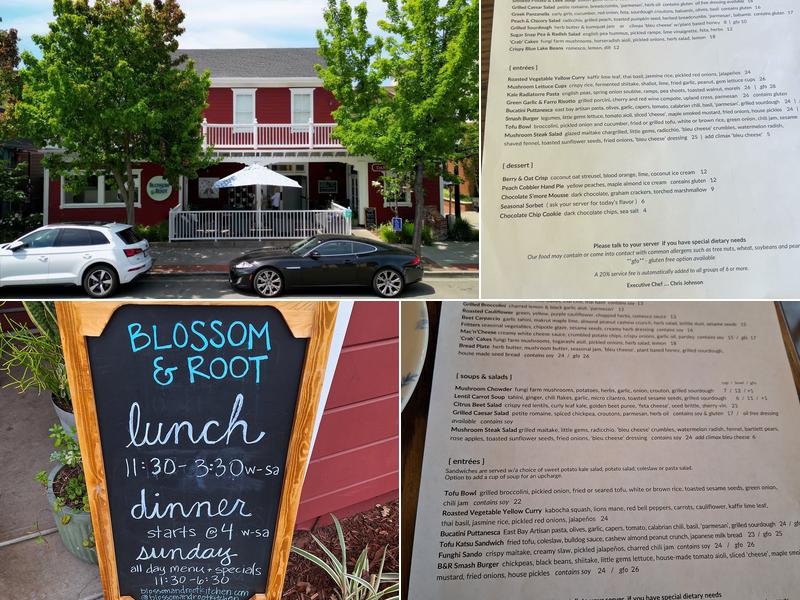 BLOSSOM
& ROOT
Grilled Caesar Salad petite romaine, breadcrumbs, 'parmesan', herb oil contains gluten oil free dressing available 15
Greek Panzanella curly girls, cucumber, red onion, feta, sourdough croutons, balsamic, olives, basil contains gluten 16
Peach & Chicory Salad radicchio, grilled peach, toasted pumpkin seed, herbed breadcrumbs, 'parmesan', balsamic contains gluten 17
Grilled Sourdough herb butter & kumquat jam or climax 'bleu cheese' w/plant based honey 8 | gfo 10
Sugar Snap Pea & Radish Salad english pea hummus, pickled ramps, lime vinaigrette, feta, herbs 12
'Crab' Cakes fungi farm mushrooms, horseradish aioli, pickled onions, herb salad, lemon 18
Crispy Blue Lake Beans romesco, lemon, dill 12
[ entrées ]
Roasted Vegetable Yellow Curry kaffir lime leaf, thai basil, jasmine rice, pickled red onions, jalapeños 24
Mushroom Lettuce Cups crispy rice, fermented shiitake, shallot, lime, fried garlic, peanut, gem lettuce cups 26
Kale Radiatorre Pasta english peas, spring onion soubise, ramps, pea shoots, toasted walnut, morels 26 | gfo 28
Green Garlic & Farro Risotto grilled porcini, cherry and red wine compote, upland cress, parmesan 26 contains gluten
Bucatini Puttanesca east bay artisan pasta, olives, garlic, capers, tomato, calabrian chili, basil, 'parmesan', grilled sourdough 24 |
Smash Burger lagustas, bleu, lettuce, tomato aioli, sliced 'cheese', maple smoked mustard, fried onions, house pickles 24 |
Tofu Bowl broccolini, pickled onion and cucumber, fried or grilled tofu, white or brown rice, green onion, chili jam, sesame
Mushroom Steak Salad glazed maitake chargrilled, little gems, radicchio, 'bleu cheese' crumbles, watermelon radish,
shaved fennel, toasted sunflower seeds, fried onions, 'bleu cheese' dressing 25 | add climax 'bleu cheese' 5
[ dessert ]
Berry & Oat Crisp coconut oat streusel, blood orange, lime, coconut ice cream 12
Peach Cobbler Hand Pie yellow peaches, maple almond ice cream contains gluten 12
Chocolate S'more Mousse dark chocolate, graham crackers, torched marshmallow 9
Seasonal Sorbet ( ask your server for today's flavor ) 6
Chocolate Chip Cookie dark chocolate chips, sea salt 4
Please talk to your server if you have special dietary needs
Our food may contain or come into contact with common allergens such as tree nuts, wheat, soybeans and pea
**gfo** - gluten free option available
A 20% service fee is automatically added to all groups of 6 or more.
Executive Chef .... Chris Johnson
BLOSSOM
& ROOT
lunch
11:30- 3:30 w-sa
dinner
starts @ 4 w-sa
sunday
all day menu + specials
11:30 -6:30
blossomandrootkitchen.com
@blossomandrootkitchen
Grilled Broccolini charred lemon & black garlic aioli, 'parmesan' 13
Roasted Cauliflower green, yellow, purple cauliflower, chopped herbs, romesco sauce 13
Beet Carpaccio garlic tahini, makrut maple lime, almond peanut cashew crunch, herb salad, brittle dust, sesame 15
Fritters seasonal vegetables, chipotle glaze, sesame seeds, creamy herb dressing contains soy 16
Mac'n'Cheese creamy white cheese sauce, crumbled potato chips, crispy onions, garlic oil, parsley contains soy 15 / gfo 17
'Crab' Cakes fungi farm mushrooms, togarashi aioli, pickled onions, herb salad, lemon 18
Bread Plate herb butter, mushroom butter, seasonal jam, 'bleu cheese', plant based honey, grilled sourdough,
house made seed bread contains soy 24 / gfo 26
[ soups & salads ]
cup / bowl / gfo
Mushroom Chowder fungi farm mushrooms, potatoes, herbs, garlic, onion, crouton, grilled sourdough 7 / 12 / +1
Lentil Carrot Soup tahini, ginger, chili flakes, garlic, micro cilantro, toasted sesame seeds, grilled sourdough 6 / 11 / +1
Citrus Beet Salad crispy red lentils, curly leaf kale, golden beet puree, 'feta cheese', seed brittle, sherry vin. 21
Grilled Caesar Salad petite romaine, spiced chickpea, croutons, parmesan, herb oil contains soy & gluten 17 / oil free dressing
available contains soy
Mushroom Steak Salad grilled maitake, little gems, radicchio, 'bleu cheese' crumbles, watermelon radish, fennel, bartlett pears,
rose apples, toasted sunflower seeds, fried onions, 'bleu cheese' dressing contains soy 24 add climax bleu cheese 6
[ entrées ]
Sandwiches are served w/a choice of sweet potato kale salad, potato salad, coleslaw or pasta salad.
Option to add a cup of soup for an upcharge.
Tofu Bowl grilled broccolini, pickled onion, fried or seared tofu, white or brown rice, toasted sesame seeds, green onion,
chili jam contains soy 22
Roasted Vegetable Yellow Curry kabocha squash, lions mane, red bell peppers, carrots, cauliflower, kaffir lime leaf,
thai basil, jasmine rice, pickled red onions, jalapeños 24
Bucatini Puttanesca East Bay Artisan pasta, olives, garlic, capers, tomato, calabrian chili, basil, 'parmesan', grilled sourdough 24 /
Tofu Katsu Sandwich fried tofu, coleslaw, bulldog sauce, cashew almond peanut crunch, japanese milk bread 23 / gfo 25
Funghi Sando crispy maitake, creamy slaw, pickled jalapeños, charred chili jam contains soy 24 / gfo 26
B&R Smash Burger chickpeas, black beans, shiitake, little gems lettuce, house-made tomato aioli, sliced 'cheese', maple
mustard, fried onions, house pickles contains soy 24 / gfo 26
if you have special dietary needs